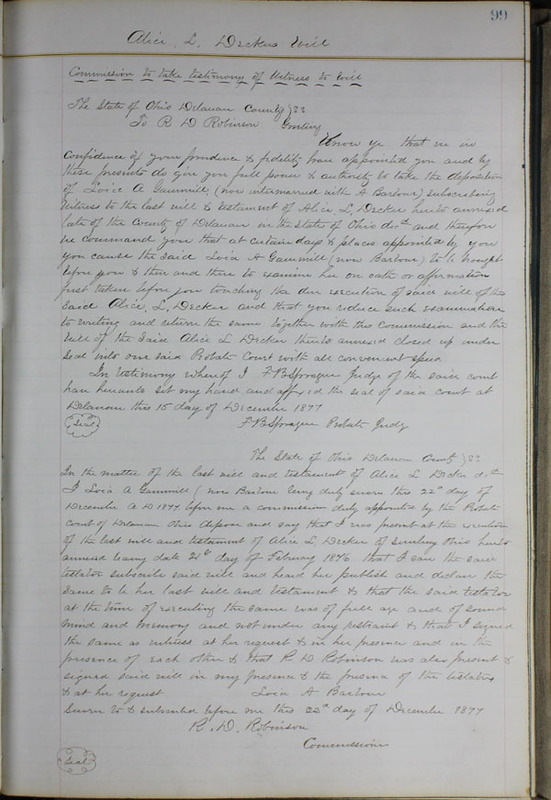 99
Alice L. Deckers Will
Commission to take testimony of Witness to Will
The State of Ohio Delaware County } SS
To R D Robinson Greeting
Know ye that we in
confidence of your prudence & fidelity have appointed you and by
these presents do give you full power & authority to take the deposition
of A Gammill, (now intermarried with A Barbour) subscribing
witness to the last will & testament of Alice L. Decker hereto annexed
late of the County of Delaware in the State of Ohio decd and therefore
we command you that at certain days & places appointed by you
you cause the said A Gammill (now Barbour) to be brought
before you & then and there to examine her on oath or affirmation
first taken before you touching the due execution of said will of the
said Alice, L. Decker and that you reduce such examinations
to writing and return the same together with this Commission and the
will of the said Alice L Decker thereto annexed closed up under
seal into our said Probate Court with all convenient speed
In testimony whereof I F B Sprague Judge of the said court
have hereunto set my hand and affixed the seal of said court at
Delaware this 15 day of December 1877
Seal F B Sprague Probate Judge
The State of Ohio Delaware County } SS
In the matter of the last will and testament of Alice L Decker decd
I A Gammill (now Barbour being duly sworn this 22d day of
December A D 1877 before me a commission duly appointed by the Probate
Court of Delaware Ohio depose and say that I was present at the execution
of the last will and testament of Alice L, Decker of Sunbury Ohio hereto
annexed bearing date day of February 1876 that I saw the said
testator subscribe said will and heard her publish and declare the
same to be her last will and testament & that the said testator
at the time of executing the same was of full age and of sound
mind and memory and not under any restraint & that I signed
the same as witness at her request & in her presence and in the
presence of each other & that R D Robinson was also present &
signed said will in my presence & the presence of the testator
& at her request A Barbour
Sworn to & subscribed before me this 22d day of December 1877
R. D. Robinson
Commissioner
Seal